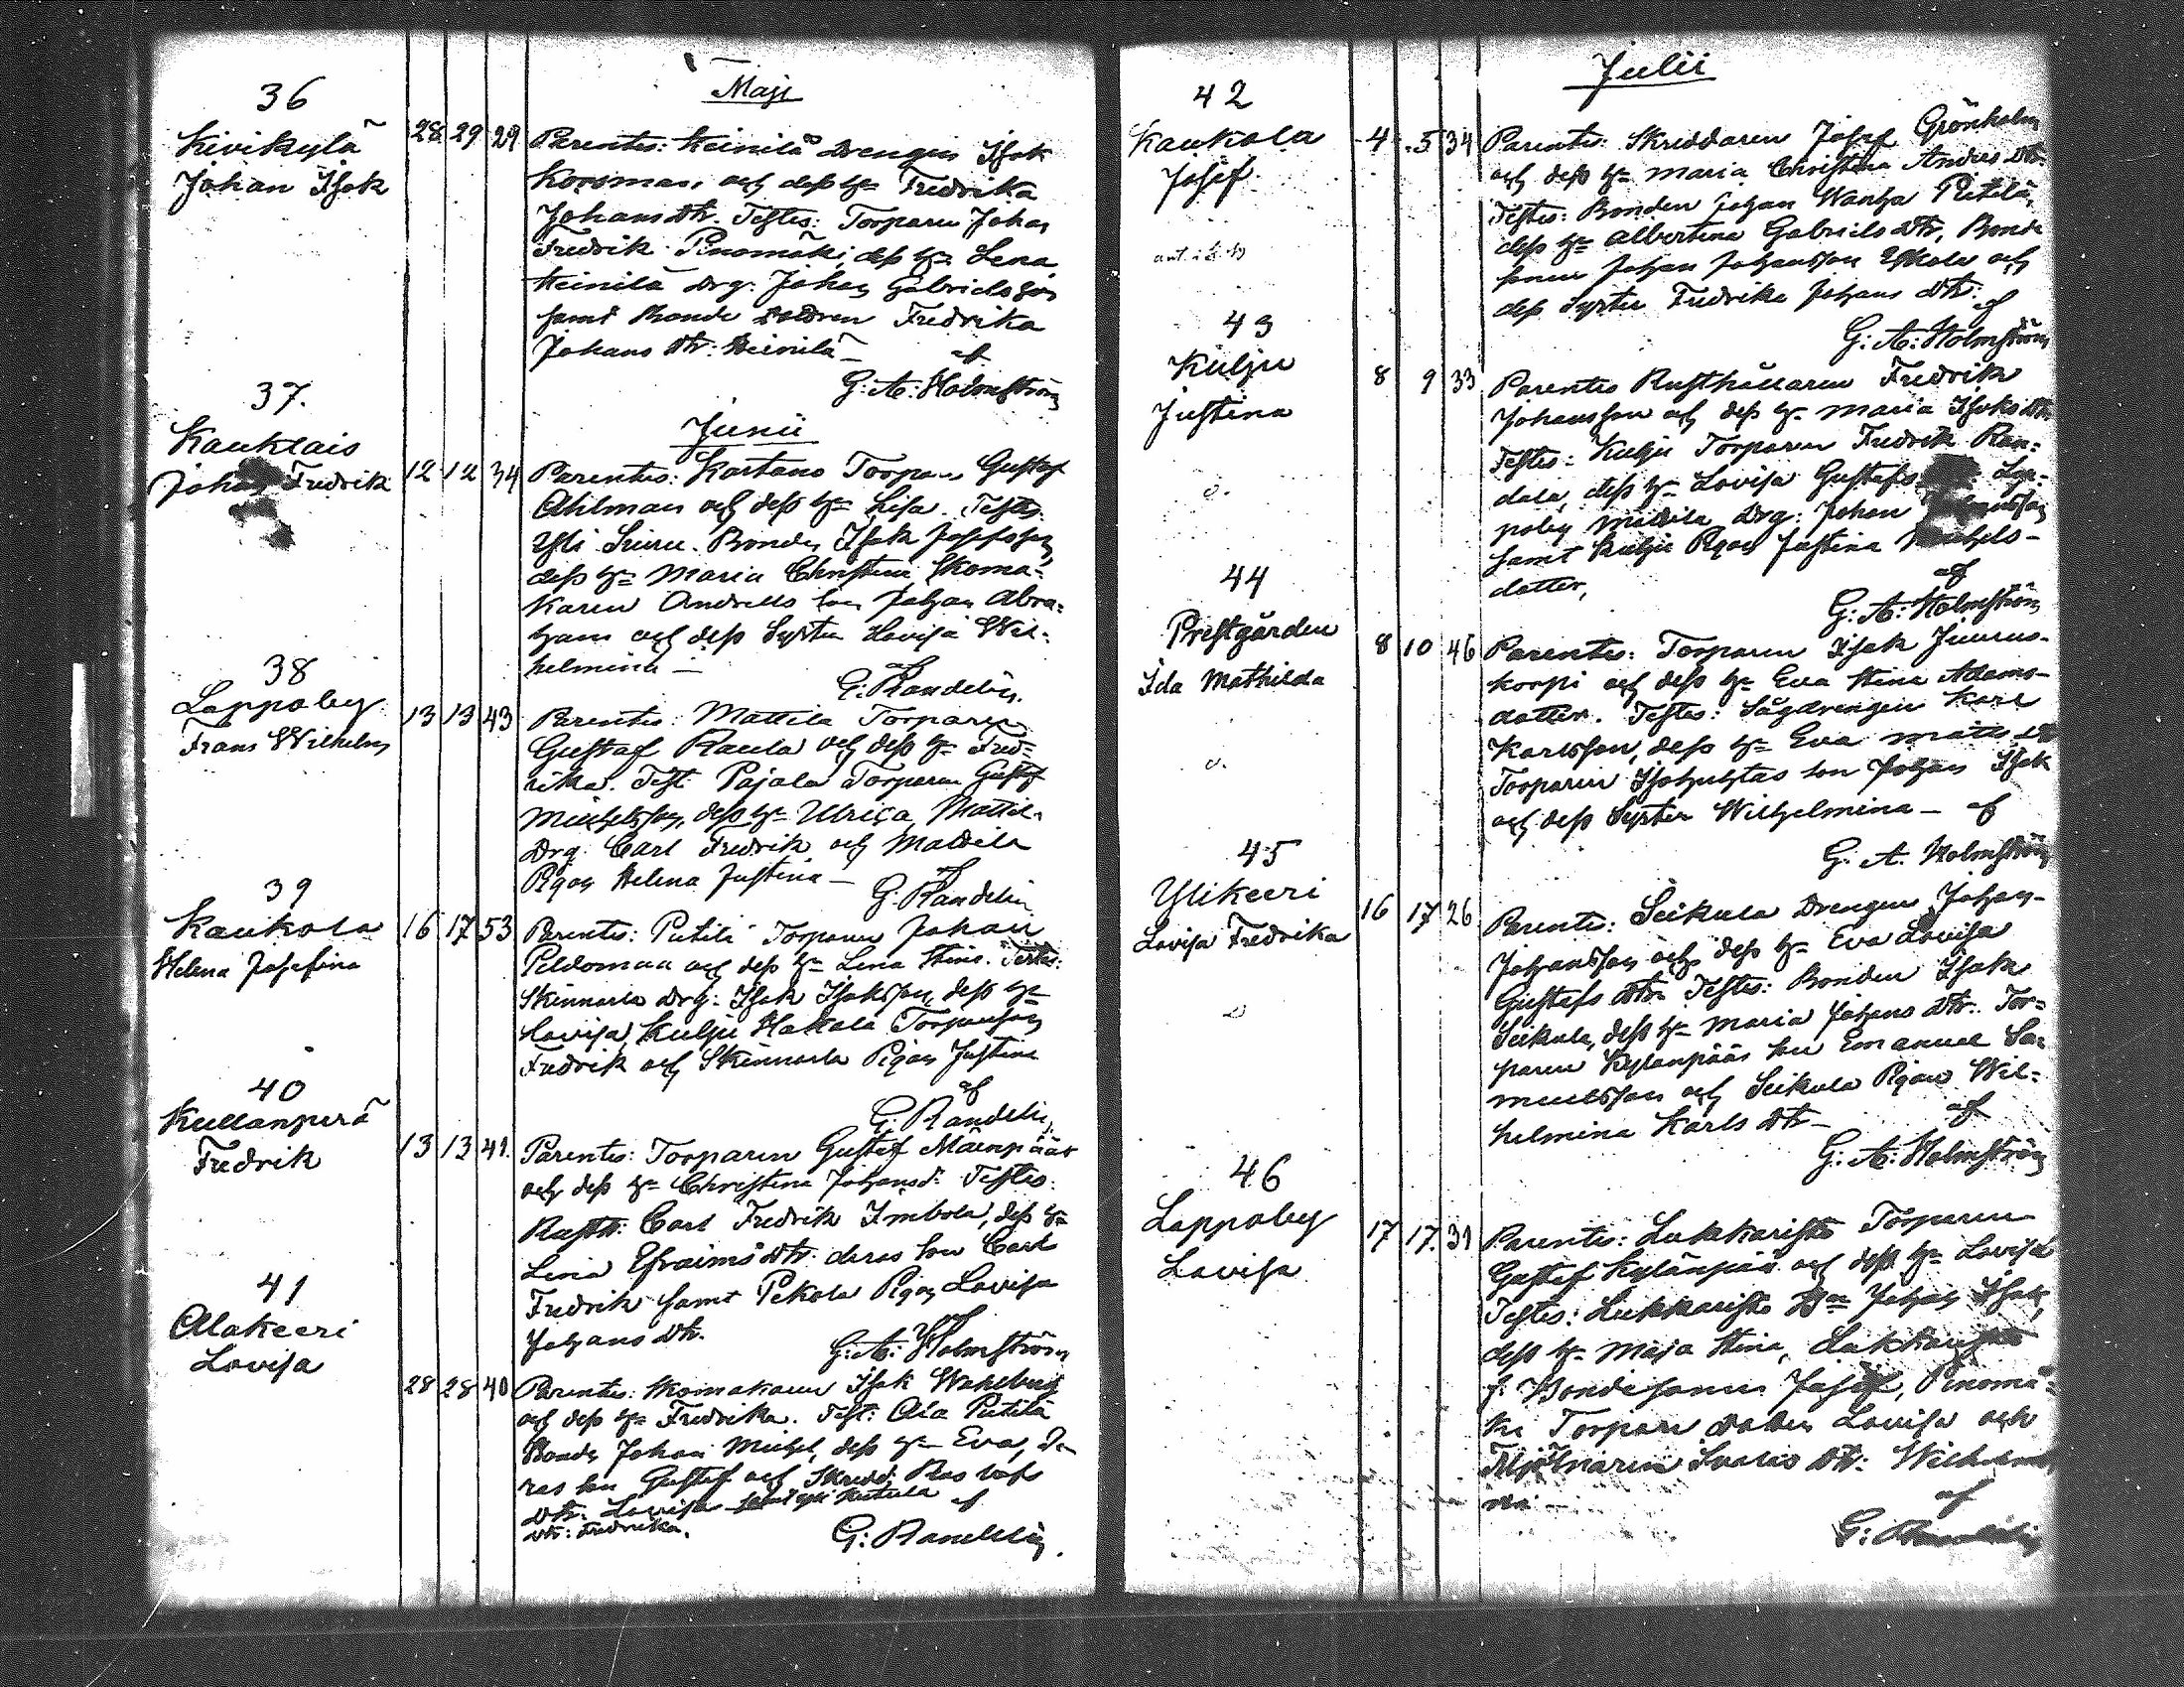 Maji
36
Kivikylä
Johan Isak
28 29 29
Parentes: Heinilä Drengen Isak
Korsman, och dess H: Fredrika
Johans Dtr. Testes: Torparen Johan
Fredrik Pinomäki, dess H: Lena
Heinilä Drg: Johan Gabrielsson
samt Bonde Dottren Fredrika
Johans Dtr: Heinilä — af
G: A: Holmström
Junii
37.
Kauklais
Johan Fredrik
12 12 34
Parentes: Kartano Torparen Gustaf
Ahlman och dess H: Lisa. Testes
Yli Bonden Isak Josefsson
dess H: Maria Christina, Skoma-
karen Andells son Johan Abra-
ham och dess Syster Lovisa Wil-
helmina — af
G: Randelin.
38
Lappoby
Frans Wilhelm
13 13 43
Parentes: Mattila Torparen
Gustaf Raula och dess H: Fred-
rika. Test: Pajala Torparen Gustaf
Michelsson, dess H: Ulrica, Mattila
Drg: Carl Fredrik och Mattila
Pigan Helena Justina — af
G. Randelin
39
Kaukola
Helena Josefina
16 17 53
Parentes: Putila Torparen Johan
Peldomaa och dess H: Lena Stina. Testes:
Skinnarla Drg: Isak Isaksson, dess H:
Lovisa, Kulju Hakala Torpareson
Fredrik och Skinnarla Pigan Justina
af
G: Randelin
40
Kullanperä
Fredrik
13 13 41.
Parentes: Torparen Gustaf Mäenpää
och dess H: Christina Johansd: Testes:
Rusth: Carl Fredrik Imbola, dess H:
Lena Efraims Dtr: deras son Carl
Fredrik samt Pekola Pigan Lovisa
Johans Dtr. af
G: A: Holmström
41
Alakeeri
Lovisa
28 28 40
Parentes: Skomakaren Isak Wahlberg
och dess H: Fredrika. Test: Ala Putila
Bonden Johan Michel, dess H: Eva, de-
ras son Gustaf och Skredd:
Dtr: Lovisa samt
Dtr: Fredrika. af
G: Randelin.
Julii
42
Kaukola
Josef
4 5 34
Parentes: Skreddaren Josef Grönholm
och dess H: Maria Christina Anders Dtr:
Testes: Bonden Johan Wanha Putila,
dess H: Albertina Gabriels Dtr, Bonde
sonen Johan Johansson och
dess Syster Fredrika Johans Dtr: af
G: A: Holmström
43
Kulju
Justina
8 9 33
Parentes Rusthållaren Fredrik
Johansson och dess H: Maria Isaks Dtr.
Testes: Kulju Torparen Fredrik Ran-
dala, dess H: Lovisa Gustafs Lap-
poby Mattila Drg: Johan
samt Kulju Pigan Justina Michels-
dotter, af
G: A: Holmström
44
Prestgården
Ida Mathilda
8 10 46
Parentes: Torparen Isak Juurus-
korpi och dess H: Eva Stina Adams-
dotter. Testes: Sågdrengen Karl
Karlsson, dess H: Eva Matts Dtr
Torparen son Johan Isak
och dess Syster Wilhelmina — af
G. A. Holmström
45
Ylikeeri
Lovisa Fredrika
16 17 26
Parentes: Seikula Drengen Johan
Johansson och dess H: Eva Lovisa
Gustafs Dtr. Testes: Bonden Isak
Seikula, dess H: Maria Johans Dtr. Tor-
paren Kylänpääs son Emanuel Sa-
muelsson och Seikula Pigan Wil-
helmina Karls Dtr — af
G: A: Holmström
46
Lappoby
Lovisa
17 17. 31
Parentes: Lukkaristo Torparen
Gustaf Kylänpää och dess H: Lovisa
Testes: Lukkaristo Johan Isak,
dess H: Maja Stina, Lukkaristo
f. Bondesonen Josef, Pinomä-
ki Torpare Dotter Lovisa och
Dtr: Wilhelmi-
na — af
G: Randelin